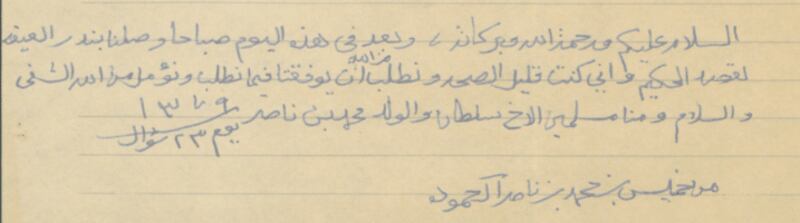 السلام عليكم ورحمة الله وبركاته، وبعد في هذه اليوم صباحا وصلنا بندر
لقصد الحكيم واني كنت قليل الصحه ونطلب من الله أن يوفقنا فيما نطلب ونؤمل من الله الشفى
والسلام ومنا مسلمين الاخ سلطان والولد محمد بن ناصر
يوم ٢٣ شوال
من خميس بن محمد بن ناصر